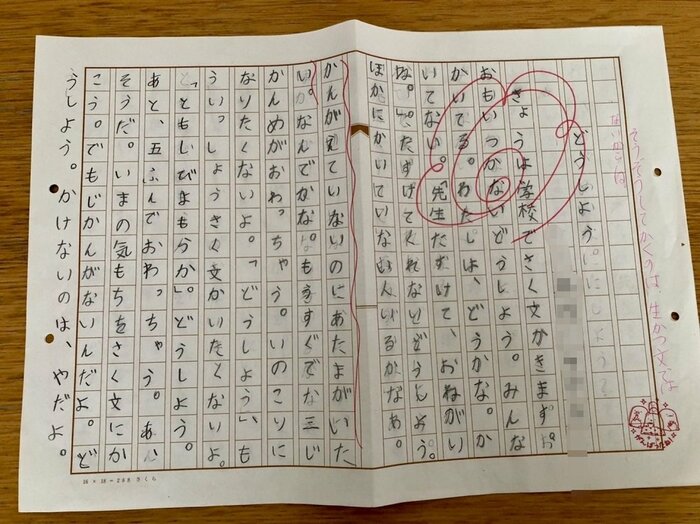 そうぞうしてかくのは、生かつ文では
どうしよう。
きょうは学校でさく文かきます。
おもいつかないどうしよう。みんな
かいてる。わたしは、どうかな。か
いてない。「先生たすけて、おねがい
たすけてくれないどうしよう。
ほかにかいていない人いるかなあ。
かんがえていないのにあたまがいた
い。なんでかな。もうすぐで三じ
かんめがおわっちゃう。いのこりに
なりたくないよ。「どうしよう」も
ういっしょうさく文かいたくないよ。
どうしよう。
あと、五ふんでおわっちゃう。あ、
そうだ。いまの気もちをさく文にか
こう。でもじかんがないんだよ。ど
うしよう。かけないのは、やだよ。
さくら